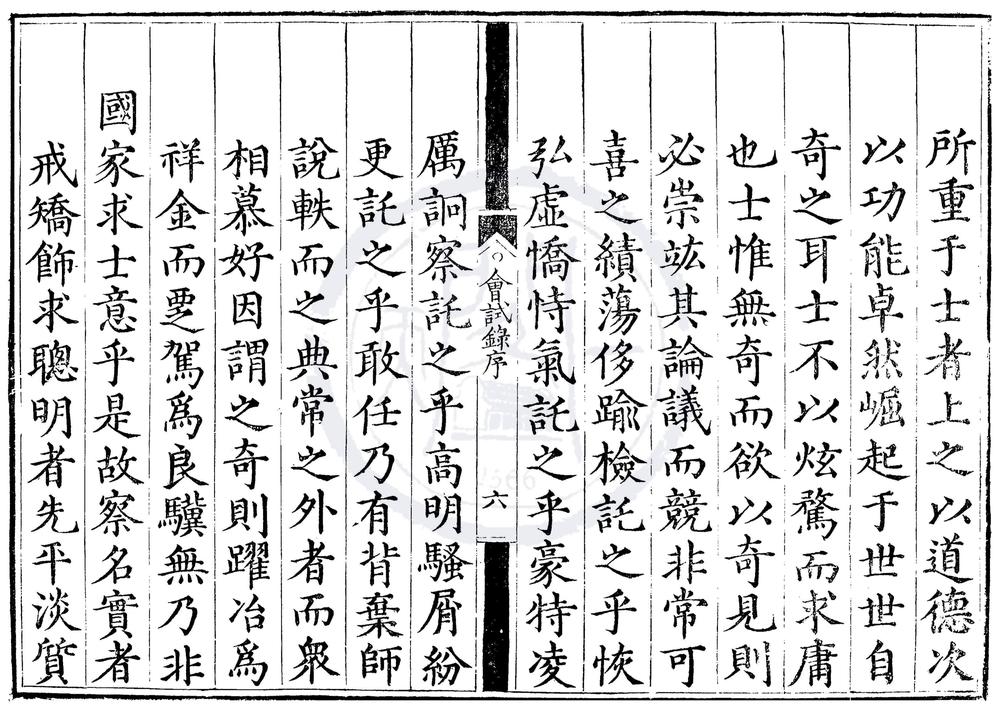 所重于士者上之以道德次
以功能卓然崛起于世世自
奇之耳士不以炫騖而求庸
也士惟無奇而欲以奇見則
必崇竑其論議而競非常可
喜之績蕩侈踰檢託之乎恢
弘虛憍恃氣託之乎豪特凌
會試錄序
六
厲詗察託之乎高明騷屑紛
更託之乎敢任乃有背棄師
說軼而之典常之外者而衆
相慕好因謂之奇則躍冶爲
祥金而覂駕爲良驥無乃非
國家求士意乎是故察名實者
戒矯飾求聰明者先平淡質
1566